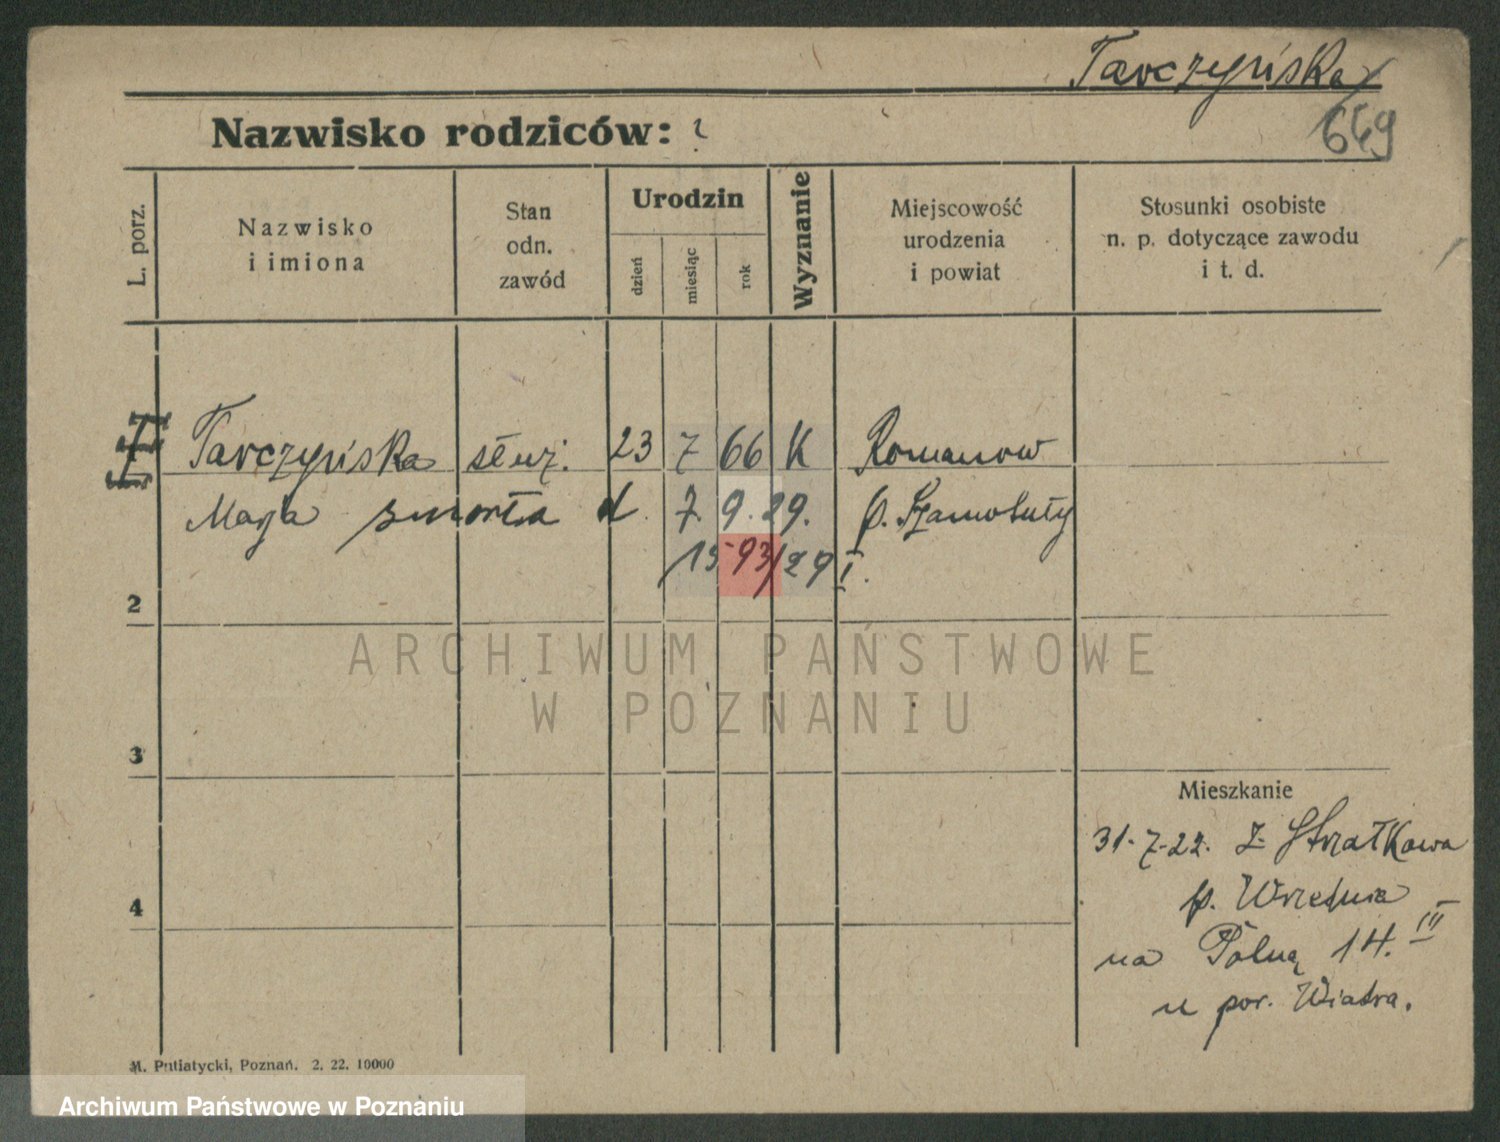 Tarczyńska
649
Nazwisko rodziców: ?
L. porz.
Nazwisko
i imiona
Stan
odn.
zawód
Urodzin
dzień
miesiąc
rok
Wyznanie
Miejscowość
urodzenia
i powiat
Stosunki osobiste
n. p. dotyczące zawodu
i t. d.
Tarczyńska służ. 23 7 66 K Romanow
zmarła d. 7. 9. 29. p. Szamotuły
1593/29 I.
2
ARCHIWUM PAŃSTWOWE
W POZNANIU
3
Mieszkanie
31. 7. 22. z Strzałkowa
4
p. Września
na Polną 14. III
u por. Wiatra.
M. Putiatycki, Poznań. 2. 22. 10000
Archiwum Państwowe w Poznaniu